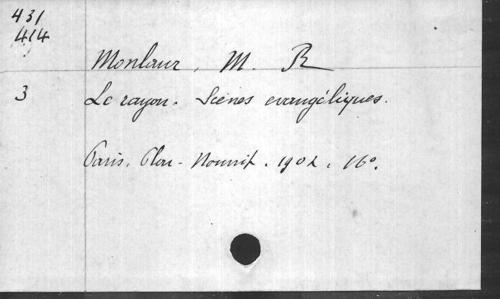 431
414
Monlaur, M. R
3
Le rayon. Scènes evangéliques.
Paris, Plon-Nourrit. 1902. 16°.